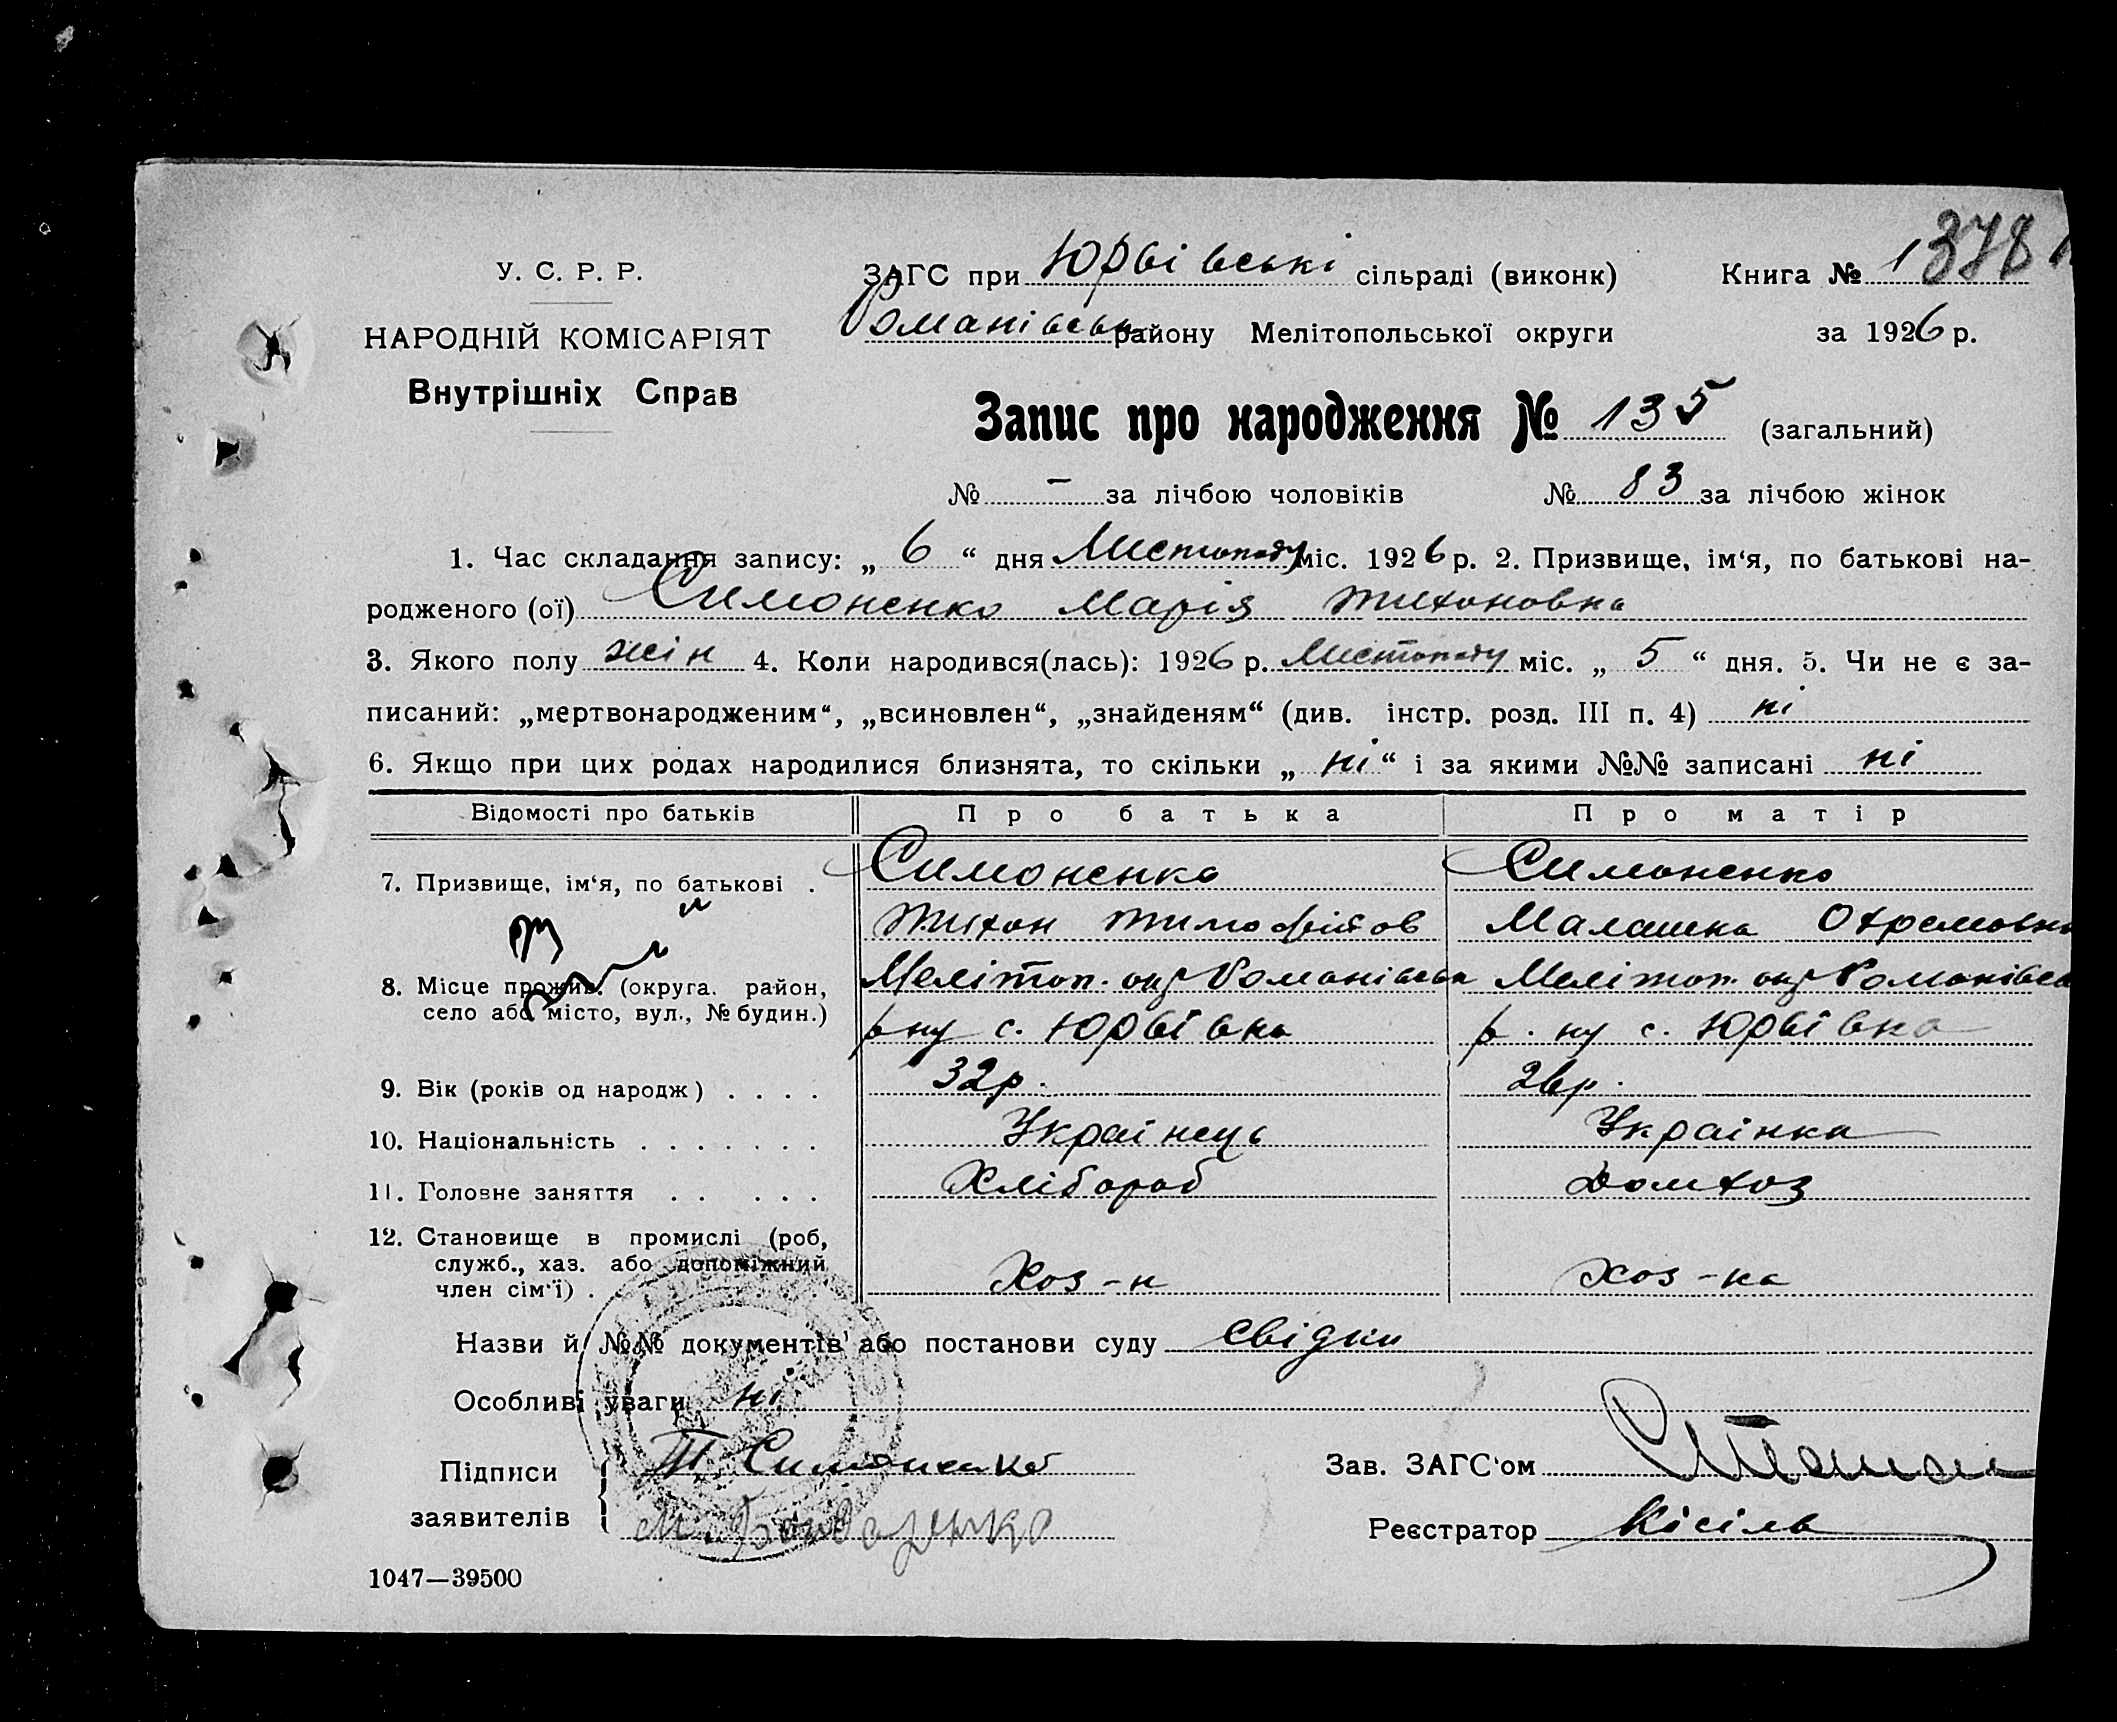 У. С. Р. Р.
НАРОДНІЙ КОМІСАРІЯТ
Внутрішніх Справ
ЗАГС при Юрвівські сільраді (виконк) Книга № 1
378
Романівськ району Мелітопольської округи за 1926 р.
Запис про народження № 135 (загальний)
№ – за лічбою чоловіків № 83 за лічбою жінок
1. Час складання запису: „ 6 “ дня Листопаду міс. 1926 р. 2. Призвище, ім‘я, по батькові на-
родженого (ої) Симоненко Марія Тихоновна
3. Якого полу жін 4. Коли народився(лась): 1926 р. Листопаду міс. „ 5 “ дня. 5. Чи не є за-
писаний: „мертвонародженим“, „всиновлен“, „знайденям“ (див. інстр. розд. III п. 4) ні
6. Якщо при цих родах народилися близнята, то скільки „ ні “ і за якими №№ записані ні
Відомості про батьків Про батька Про матір
7. Призвище, ім‘я, по батькові . Симоненко Симоненко
Тихон Тимофійов Малашка Охремовна
8. Місце прожив. (округа. район, Мелітоп. окр Романівськ Мелітоп. окр Романівськ
село або місто, вул., № будин.) р ну с. Юрвівка р. ну с. Юрвівка
9. Вік (років од народж) . . . . 32р. 26р.
10. Національність . . . . . . . Украінець Украінка
11. Головне заняття . . . . . Хлібороб Домхоз
12. Становище в промислі (роб,
служб., хаз. або допоміжний
член сім‘ї) . Хоз-н Хоз-ка
Назви й №№ документів або постанови суду Свідки
Особливі уваги ні
Підписи Т. Симоненко Зав. ЗАГС‘ом
заявителів М. Бондаренко Реєстратор Кісіль
1047—39500